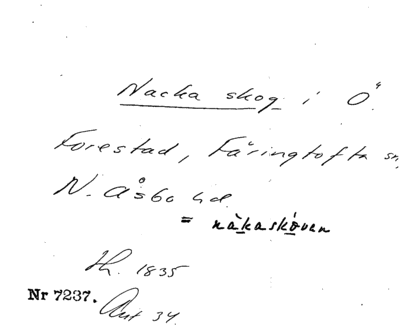 Nacka skog i Ö.
Forestad, Färingtofta sn,
N. Åsbo hd.
= nàkaskó̱ven
Th. 1835
Nr 7237.
Ant 34.